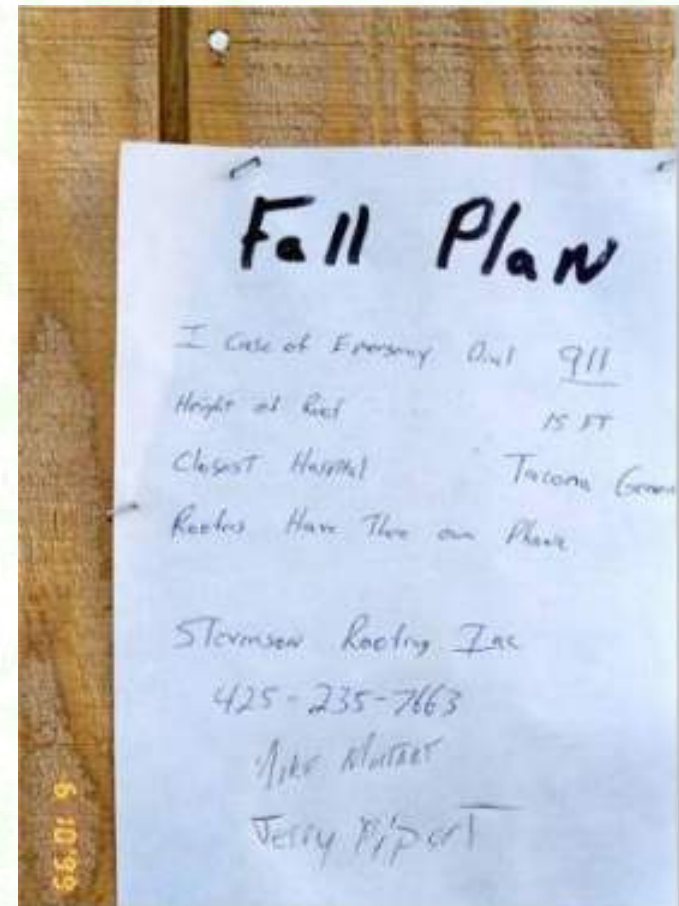 Fall Plan
I Case of Emergency Dial 911
Height of Roof 15 FT
Closest Hospital Tacoma Gener
Roofers Have Thre own Phone
Stevenson Roofing Inc
425-235-7663
Mike
Jerry
6 10'99